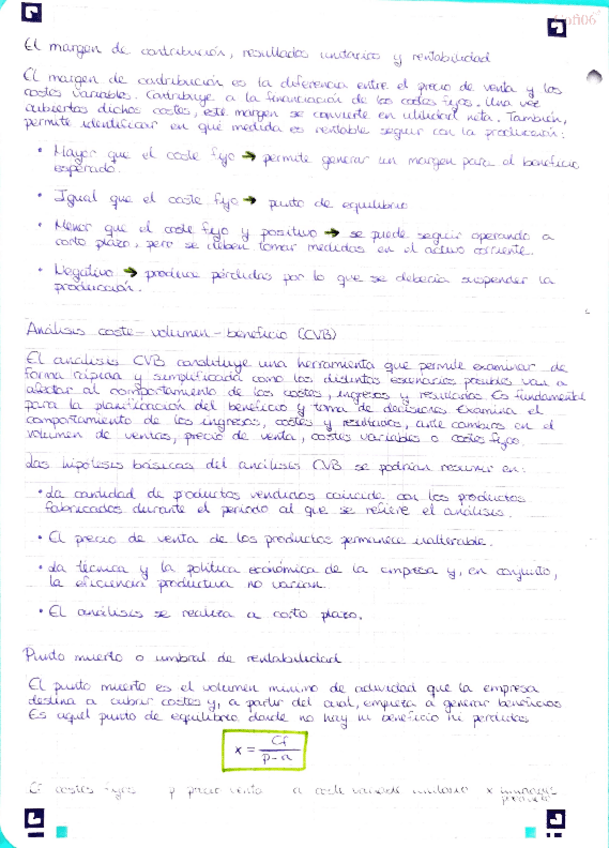 Gofi06
El margen de contribución, resultados unitarios y rentabilidad
El margen de contribución es la diferencia entre el precio de venta y los
costes variables. Contribuye a la financiación de los costes fijos. Una vez
cubiertos dichos costes, este margen se convierte en utilidad neta. También,
permite identificar en qué medida es rentable seguir con la producción:
• Mayor que el coste fijo → permite generar un margen para el beneficio
esperado.
• Igual que el coste fijo → punto de equilibrio
• Menor que el coste fijo y positivo → se puede seguir operando a
corto plazo, pero se deben tomar medidas en el activo corriente.
• Negativo → produce pérdidas por lo que se debería suspender la
producción.
Análisis coste-volumen-beneficio (CVB)
El análisis CVB constituye una herramienta que permite examinar de
forma rápida y simplificada como los distintos escenarios posibles van a
afectar al comportamiento de los costes, ingresos y resultados. Es fundamental
para la planificación del beneficio y toma de decisiones. Examina el
comportamiento de los ingresos, costes y resultados, ante cambios en el
volumen de ventas, precio de venta, costes variables o costes fijos.
Las hipótesis básicas del análisis CVB se podrían resumir en:
• La cantidad de productos vendidos coincide con los productos
fabricados durante el periodo al que se refiere el análisis.
• El precio de venta de los productos permanece inalterable.
• La técnica y la política económica de la empresa y, en conjunto,
la eficiencia productiva no varían.
• El análisis se realiza a corto plazo.
Punto muerto o umbral de rentabilidad
El punto muerto es el volumen mínimo de actividad que la empresa
destina a cubrir costes y, a partir del cual, empieza a generar beneficios
Es aquel punto de equilibrio donde no hay ni beneficio ni pérdidas
x = Cf / p - a
Cf costes fijos p precio venta a coste variable unitario x